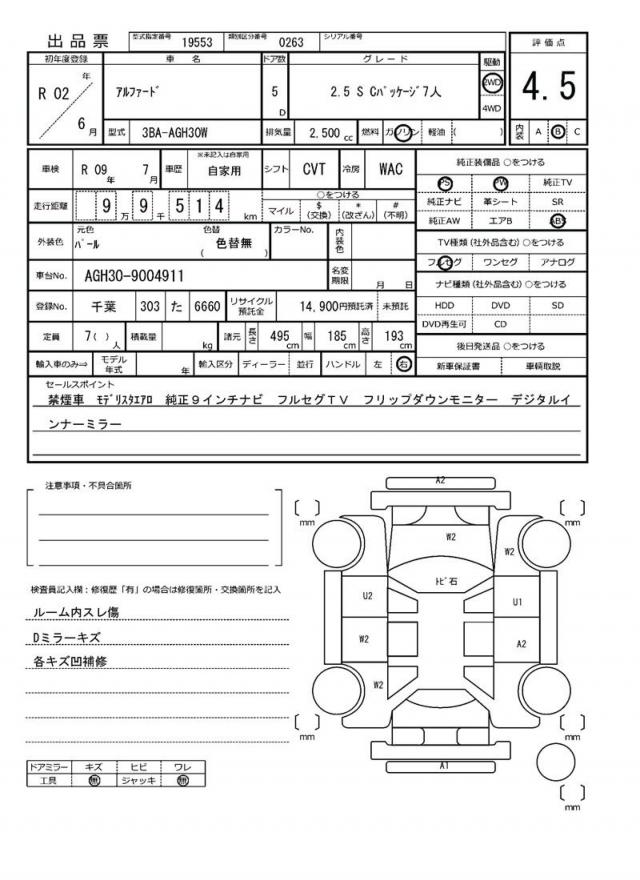 出品票 型式指定番号 19553 類別区分番号 0263 シリアル番号
初年度登録 車名 ドア数 グレード 駆動 評価点
R 02 年 6 月 アルファード 5 D 2.5 S Cパッケージ7人 2WD 4WD 4.5
型式 3BA-AGH30W 排気量 2,500 cc 燃料 ガソリン 軽油 ( ) 内装 A B C
車検 R 09 年 7 月 車歴 ※未記入は自家用 自家用 シフト CVT 冷房 WAC
純正装備品 ○をつける
PS PW 純正TV
純正ナビ 革シート SR
純正AW エアB ABS
走行距離 9 9 514 万 千 km ○をつける
マイル $ (交換) * (改ざん) # (不明)
外装色 元色 パール 色替 ( 色替無 ) カラーNo. 内装色
TV種類 (社外品含む) ○をつける
フルセグ ワンセグ アナログ
車台No. AGH30-9004911 名変期限 月 日
ナビ種類 (社外品含む) ○をつける
HDD DVD SD
DVD再生可 CD
登録No. 千葉 303 た 6660 リサイクル預託金 14,900円預託済 未預託
定員 7( ) 人 積載量 kg 諸元 長さ 495 cm 幅 185 cm 高さ 193 cm
後日発送品 ○をつける
新車保証書 車輌取説
輸入車のみ⇒ モデル年式 年 輸入区分 ディーラー 並行 ハンドル 左 右
セールスポイント
禁煙車 モデリスタエアロ 純正9インチナビ フルセグTV フリップダウンモニター デジタルイ
ンナーミラー
注意事項・不具合箇所
検査員記入欄:修復歴「有」の場合は修復箇所・交換箇所を記入
ルーム内スレ傷
Dミラーキズ
各キズ凹補修
ドアミラー キズ ヒビ ワレ
工具 無 ジャッキ 無
A2
[ ] mm [ ] mm
W2
W2
トビ石
U2 U1
W2 A2
W2
[ ] mm [ ] mm
A1
[ ] mm